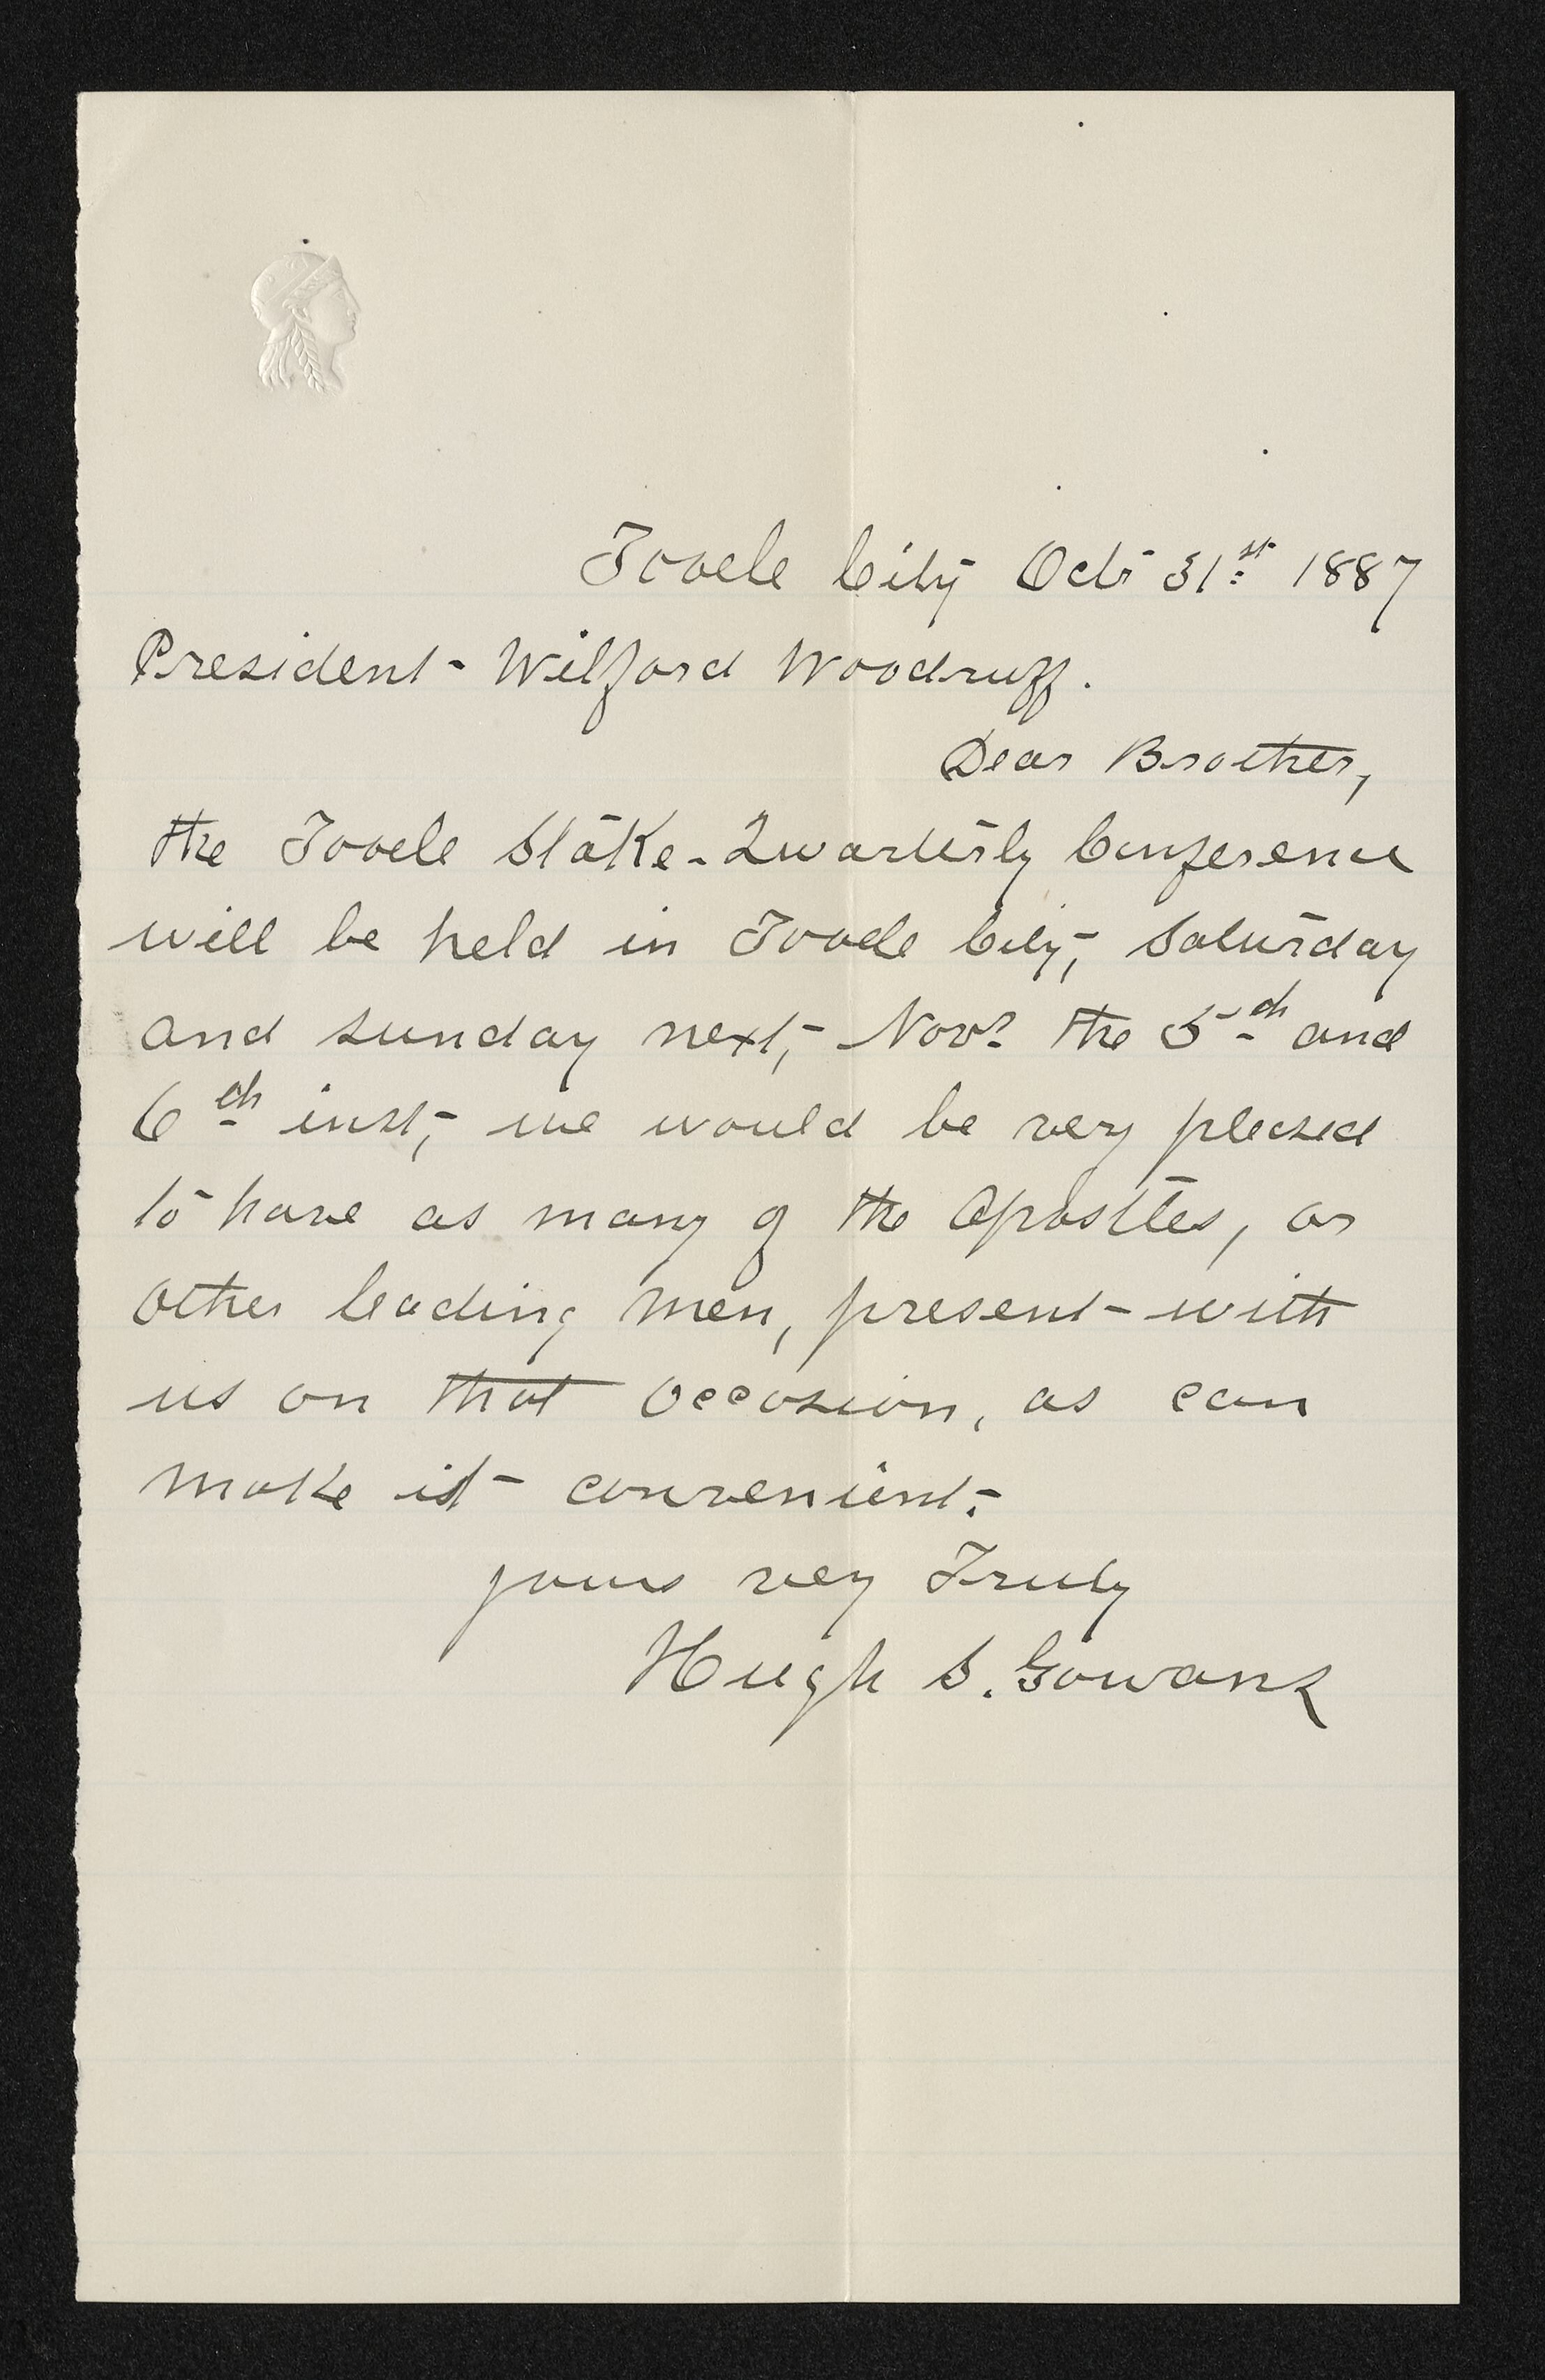 Tooele City Oct 31st 1887
President Wilford Woodruff.
Dear Brother,
the Tooele Stake Quarterly Conference
will be held in Tooele City, Saturday
and sunday next, Novr the 5th and
6th inst, we would be very pleased
to have as many of the Apostles, or
other leading men, present with
us on that occasion, as can
make it convenient.
yours very Truly
Hugh S. Gowans